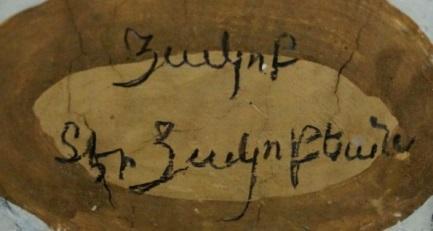 Յակոբ
Տէր Յակոբեան